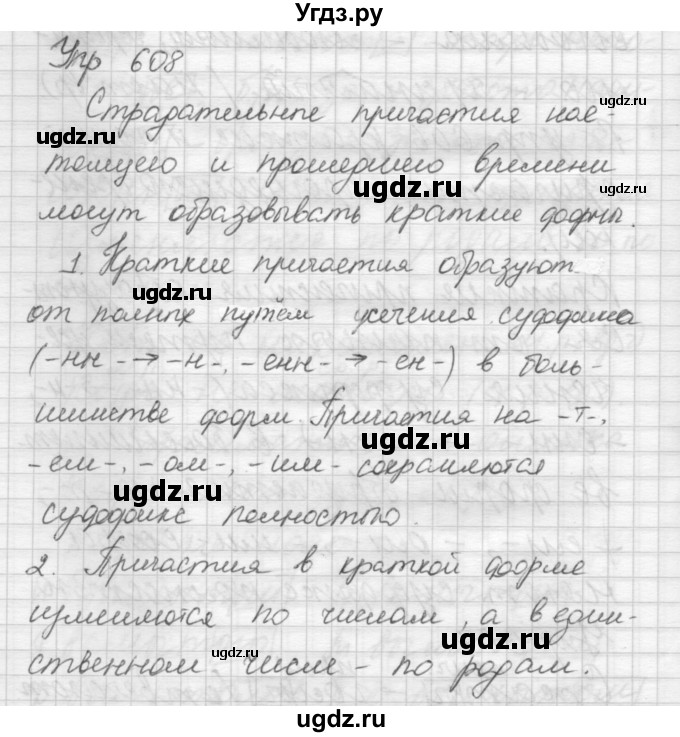 Угдз.ру
Упр 608
Страдательные причастия нас-
ugdz.ru
ugdz.ru
тоящего и прошедшего времени
ugdz.ru
ugdz.ru
могут образовывать краткие формы.
1. Краткие причастия образуют
ugdz.ru
от полных путём усечения суффикса
ugdz.ru
(-нн- → -н-, -енн- → -ен-) в боль-
шинстве форм. Причастия на -т-,
ugdz.ru
-ем-, -ом-, -им- сохраняются
ugdz.ru
суффикс полностью.
2. Причастия в краткой форме
изменяются по числам, а в един-
ugdz.ru
ственном числе - по родам.
ugdz.ru
ugdz.ru